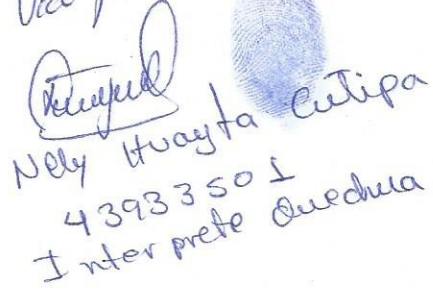 Nely Huayta Cutipa
43933501
Interprete Quechua